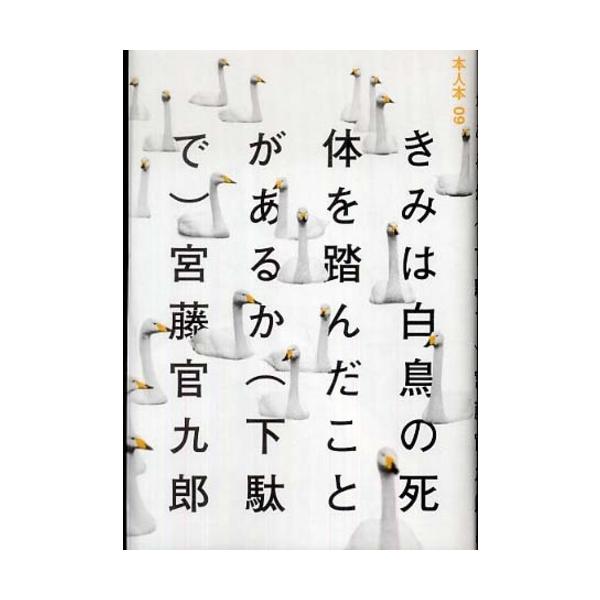 本人本 09
きみは白鳥の死
体を踏んだこと
があるか(下駄
で)宮藤官九郎